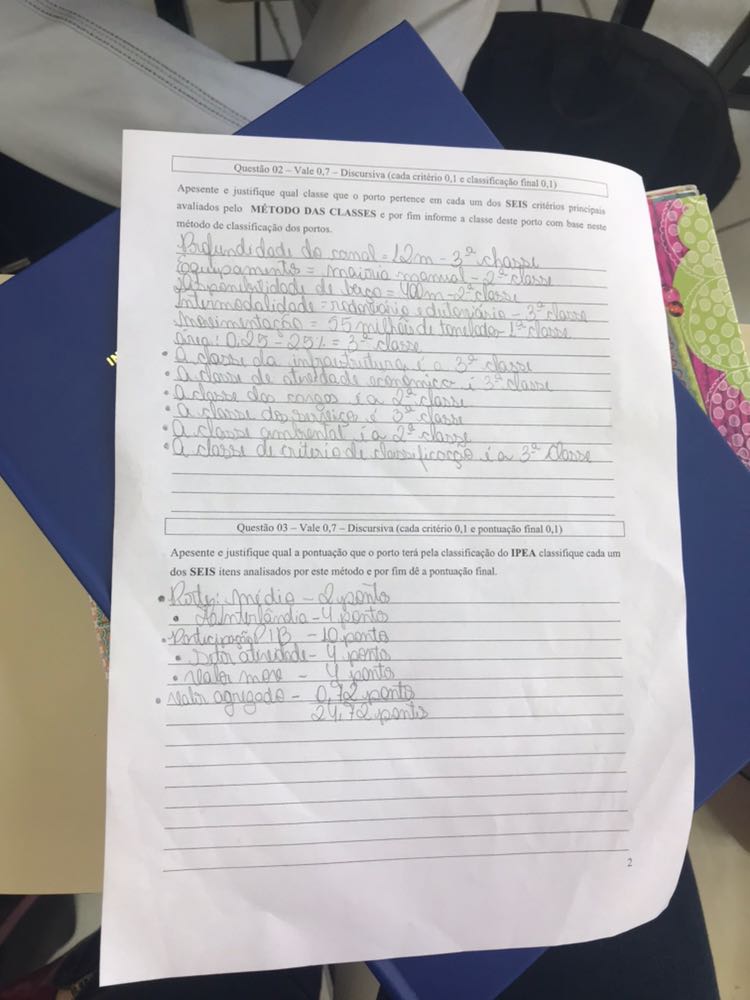 Questão 02 – Vale 0,7 – Discursiva (cada critério 0,1 e classificação final 0,1)
Apesente e justifique qual classe que o porto pertence em cada um dos SEIS critérios principais
avaliados pelo MÉTODO DAS CLASSES e por fim informe a classe deste porto com base neste
método de classificação dos portos.
Profundidade do canal = 12m - 3ª classe
Equipamento = maioria manual - 2ª classe
Disponibilidade de berço = 400m - 2ª classe
Intermodalidade = rodoviário e dutoviário - 3ª classe
Movimentação = 55 milhões de toneladas - 1ª classe
Área: 0,25 - 25% = 3ª classe
• A classe da infraestrutura é a 3ª classe
• A classe de atividade econômico é 3ª classe
• A classe das cargas é a 2ª classe
• A classe dos serviços é 3ª classe
• A classe ambiental é a 2ª classe
• A classe de criterio de classificação é a 3ª classe
Questão 03 – Vale 0,7 – Discursiva (cada critério 0,1 e pontuação final 0,1)
Apesente e justifique qual a pontuação que o porto terá pela classificação do IPEA classifique cada um
dos SEIS itens analisados por este método e por fim dê a pontuação final.
• Porte: médio - 2 ponto
• Hinterlândia - 4 ponto
• Participação PIB - 10 ponto
• Setor atividade - 4 ponto
• Valor - 4 ponto
• Valor agregado - 0,72 ponto
24,72 ponto
2